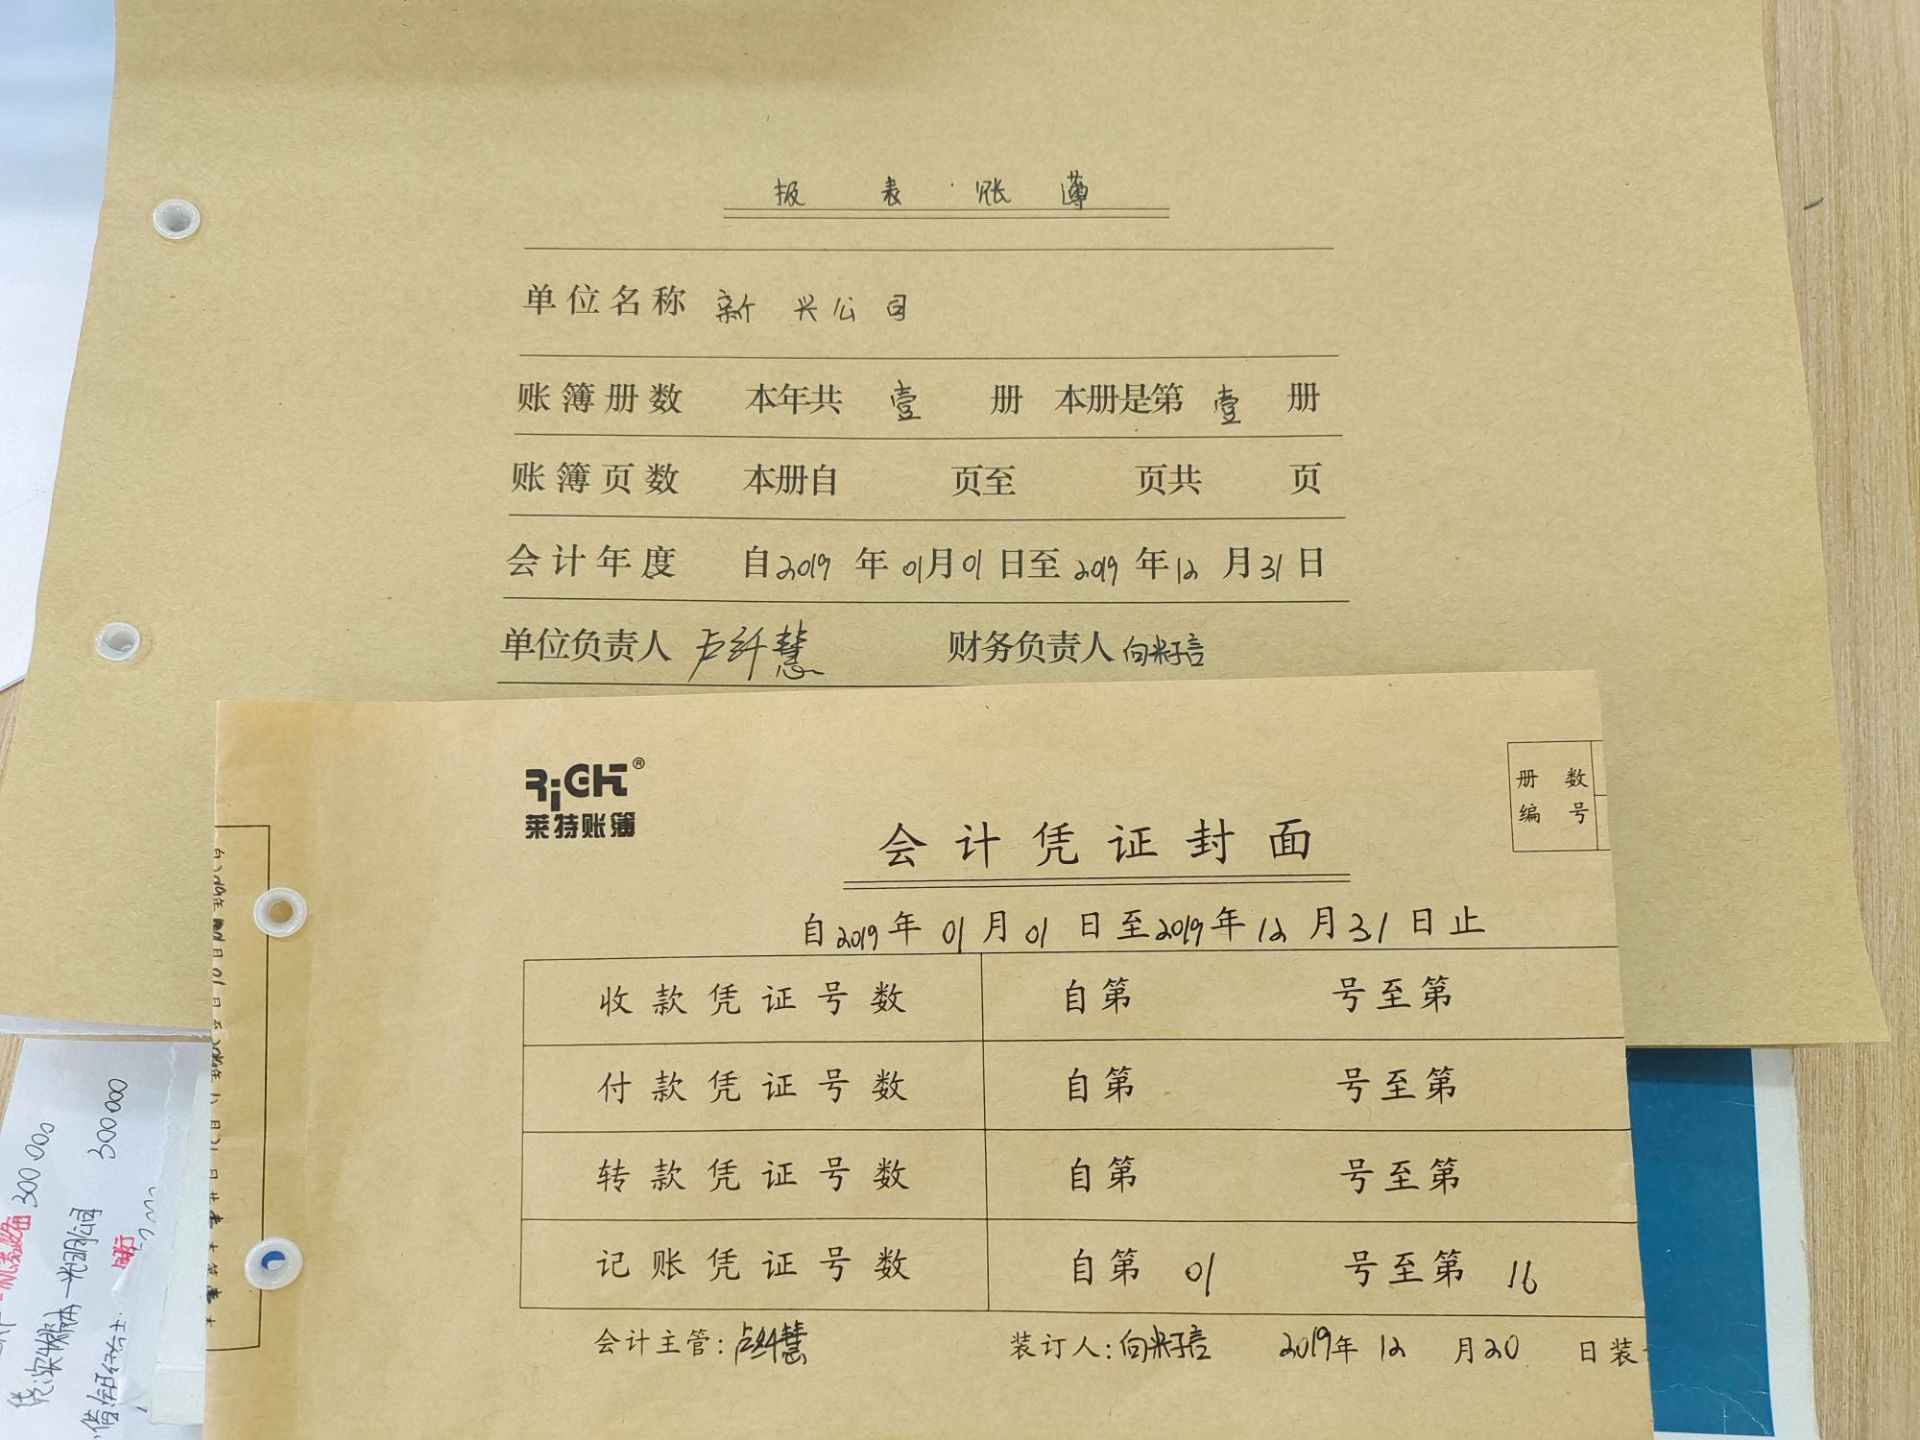 报表账薄
单位名称 新兴公司
账簿册数 本年共 壹 册 本册是第 壹 册
账簿页数 本册自 页至 页共 页
会计年度 自2019年01月01日至2019年12月31日
单位负责人 卢纤慧 财务负责人
RiGHT®
莱特账簿
册数
编号
会计凭证封面
自2019年01月01日至2019年12月31日止
收款凭证号数 自第 号至第
付款凭证号数 自第 号至第
转款凭证号数 自第 号至第
记账凭证号数 自第 01 号至第 16
会计主管:卢纤慧 装订人: 2019年12月20日装
300000
300000